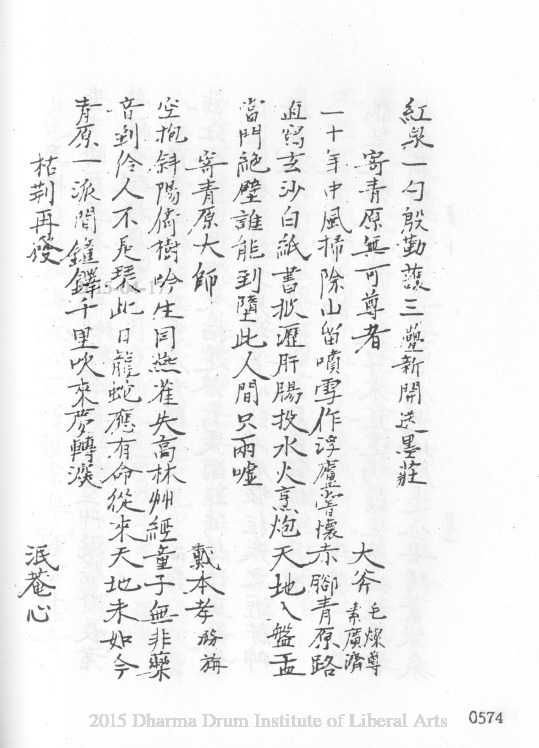 紅泉一勺殷勤讓三疊新開送墨莊
寄青原無可尊者
大斧
毛燦尊
素廣濟
一十年中風掃除山留噴雪作浮廬嘗懷赤腳青原路
直寫玄沙白紙書披瀝肝腸投水火烹炮天地入盤盂
當門絶壁誰能到墮此人間只兩噓
寄青原大師
戴本孝
務旃
空抱斜陽倚樹吟生同燕雀失高林州經童子無非藥
音到伶人不是琴此日龍蛇應有命從來天地未如今
青原一派閒鐘鐸千里吹來夢轉深
枯荆再發
泯菴心
2015 Dharma Drum Institute of Liberal Arts
0574